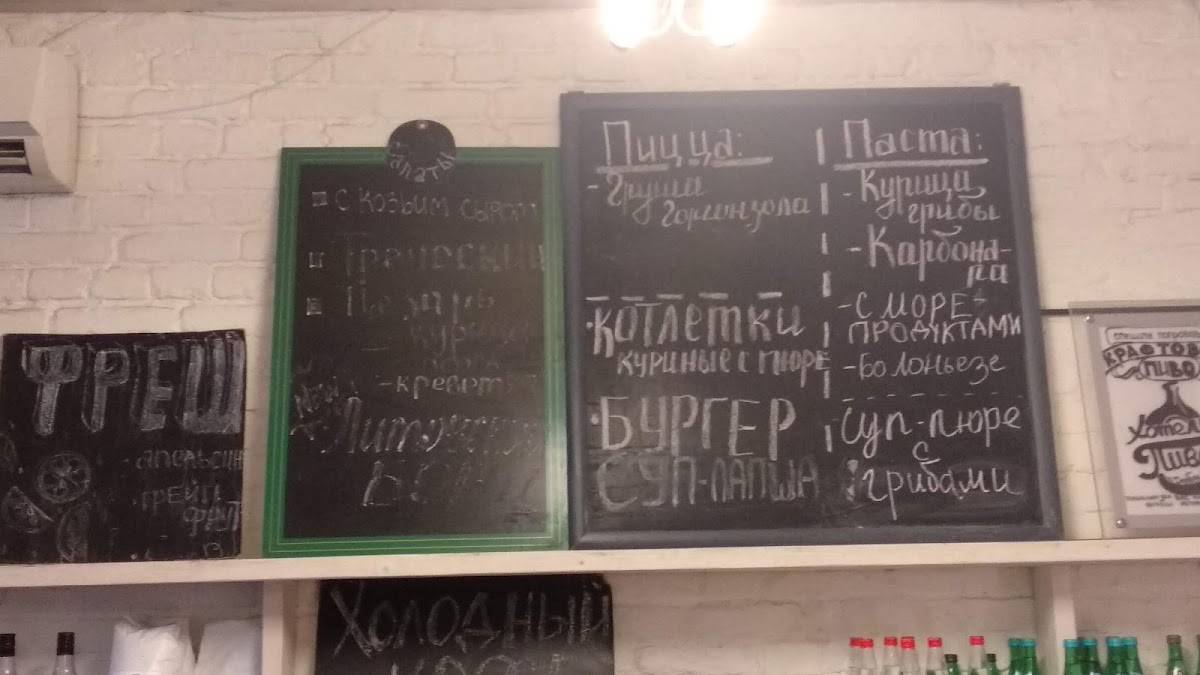 ФРЕШ
апельсин
ГРЕЙП
ФРУТ
Салаты
С КОЗЬИМ СЫРОМ
Греческий
Цезарь
- креветк
Литовский
Пицца:
- Груша
Горгонзола
КОТЛЕТКИ
КУРИНЫЕ С ПЮРЕ
БУРГЕР
СУП-ЛАПША
Паста:
- Курица
грибы
- Карбона-
ра
- С МОРЕ-
ПРОДУКТАМИ
- Болоньезе
Суп-пюре
с
грибами
КРАФТОВОЕ
ПИВО
Хотел
Пив
ХОЛОДНЫЙ